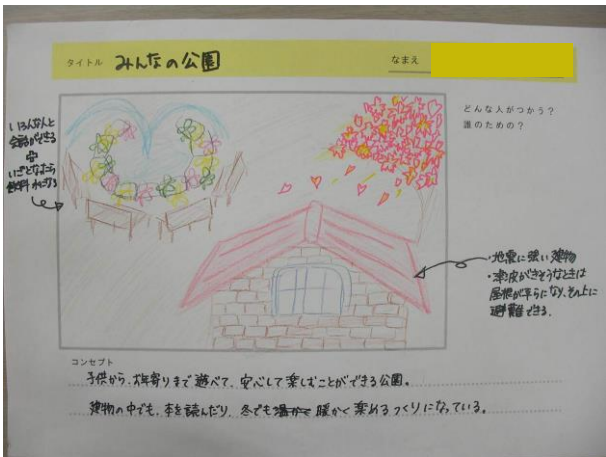 タイトル みんなの公園
なまえ
どんな人がつかう?
誰のための?
いろんな人と
会話ができる
いざとなったら
になる
・地震に強い建物
・津波がきそうなときは
屋根が平らになり、その上に
避難できる。
コンセプト
子供から、お年寄りまで遊べて、安心して楽しむことができる公園。
建物の中でも、本を読んだり、冬でも暖かく楽めるつくりになっている。